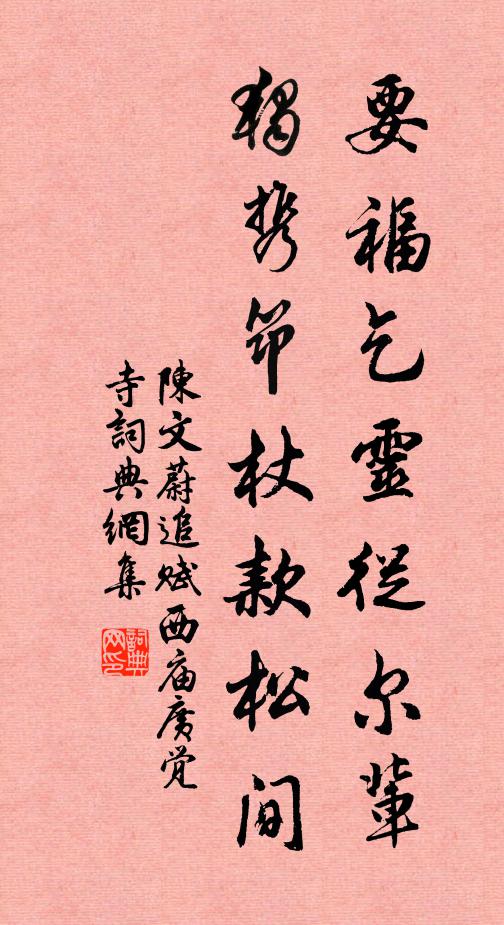 要福乞靈從尔輩
獨携笻杖款松間
陳文蔚追赋西庙廣觉
寺詞典網集
詞典网印